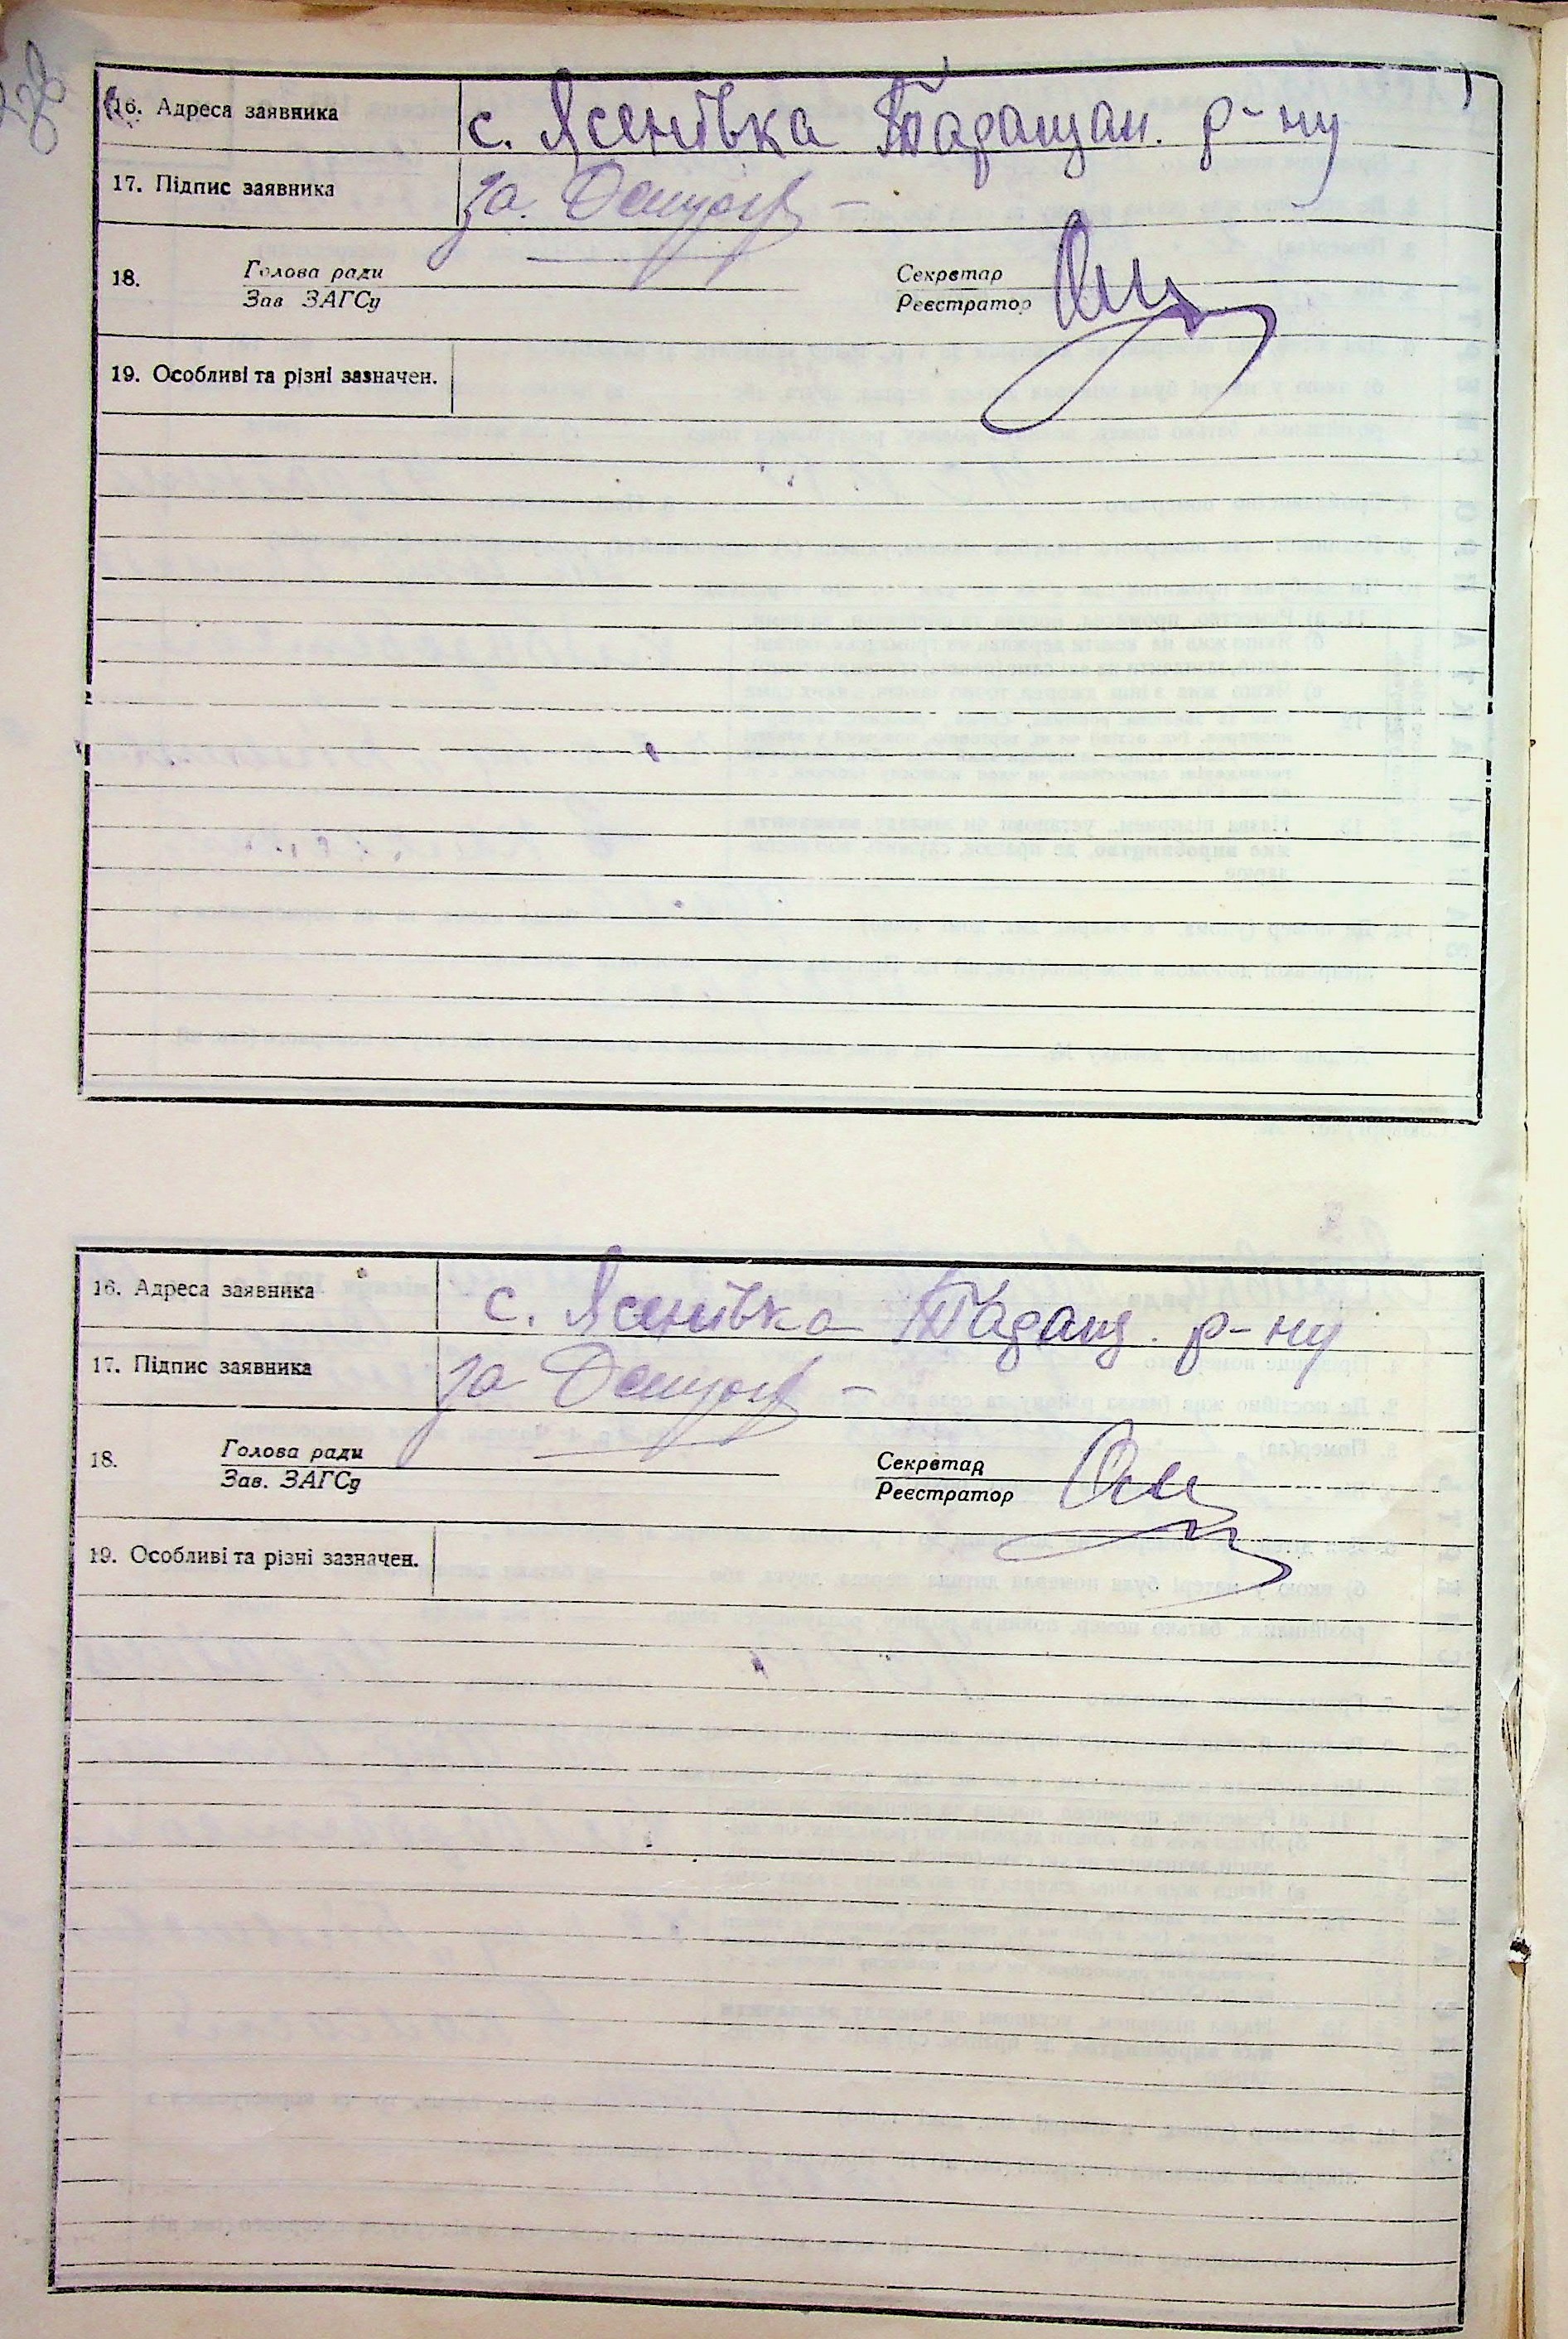 16. Адреса заявника с. Ясенівка Таращан. р-ну
17. Підпис заявника за
18. Голова ради Секретар
Зав ЗАГСу Реєстратор
19. Особливі та різні зазначен.
16. Адреса заявника с. Ясенівка Таращ. р-ну
17. Підпис заявника за
18. Голова ради Секретар
Зав. ЗАГСу Реєстратор
19. Особливі та різні зазначен.